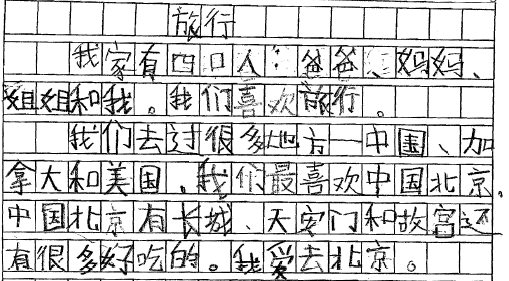 旅行
我家有四口人：爸爸、妈妈、
姐姐和我。我们喜欢旅行。
我们去过很多地方一中国、加
拿大和美国，我们最喜欢中国北京，
中国北京有长城、天安门和故宫还
有很多好吃的。我爱去北京。